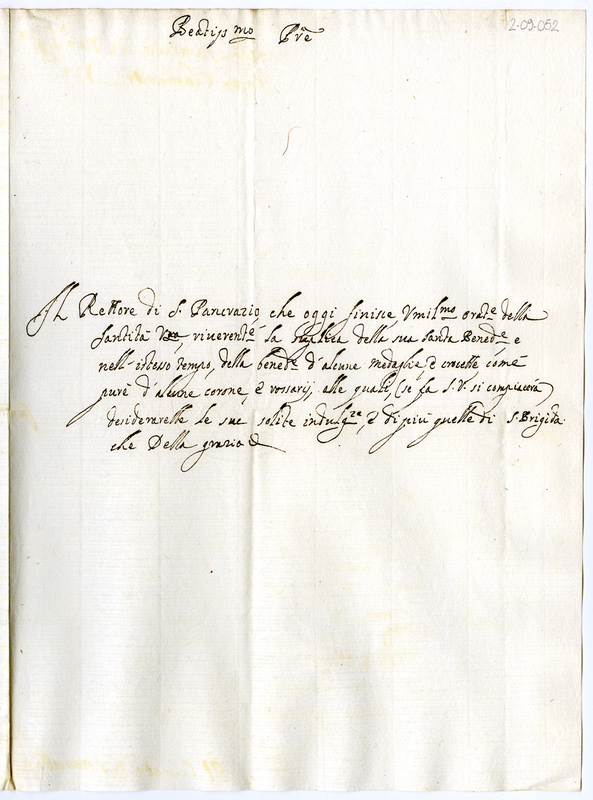 2-09-052
Beatiss.mo Pre
Il Rettore di S. Pancrazio, che oggi finisce Vmil.mo orat.e della
Santità Vra, riverent.e La supplica della sua Santa Bened.e e
nell'istesso tempo, della bened.e d'alcune medaglie, e crocette come
pure d'alcune corone, e rossarij, alle quali, (se sa S.V. si compiacerà)
desiderarebbe le sue solite indulg.ze, e di più quelle di S. Brigida
che Della grazia &